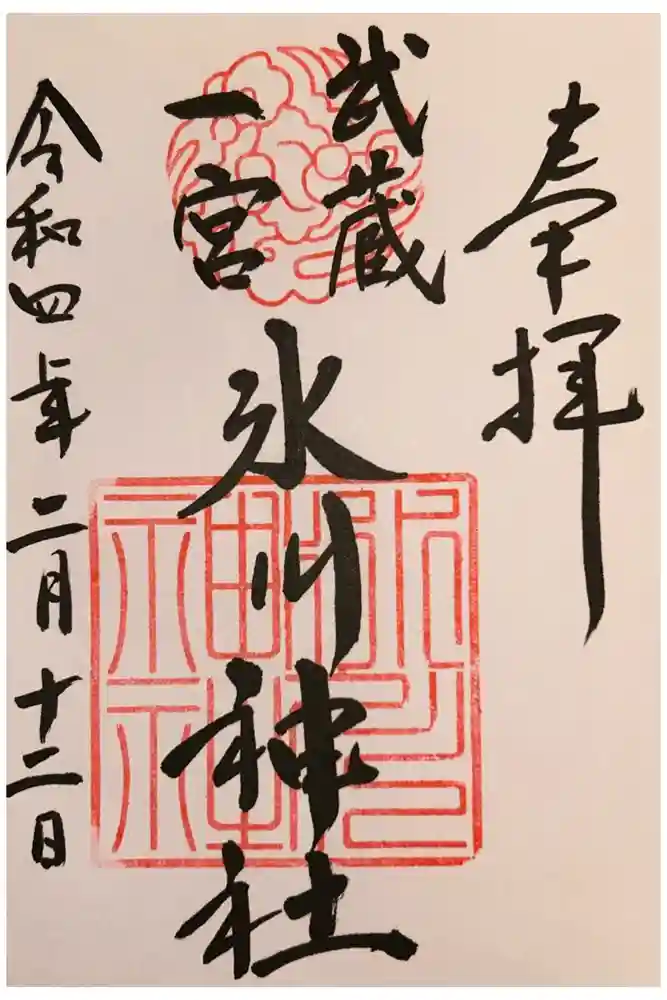 奉拝
武蔵
一宮
氷川神社
令和四年二月十二日